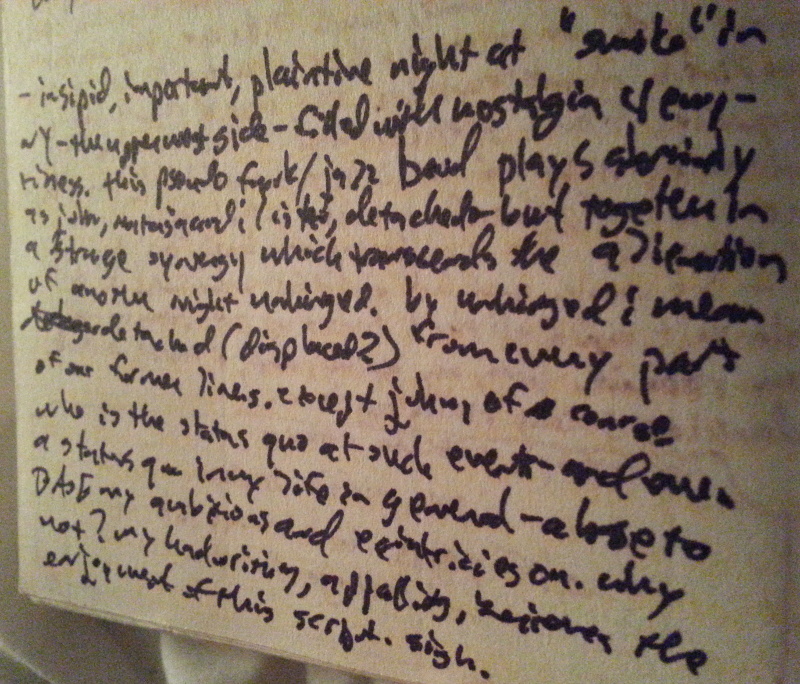 - insipid, important, plaintive night at "smoke" in
NY - the upper west side - filled with nostalgia &
this pseudo funk/jazz band plays
as john, and i listen, detached - but together in
a strange synergy which transcends the alienation
of another night unhinged. by unhinged i mean
detached (displaced?) from every part
of our former lives. except johnny of course
who is the status quo at such events - and even
a status quo in my life in general - a base to
BASE my ambitions and on. why
not? my handwriting, appalling, removes the
enjoyment of this script. sigh.